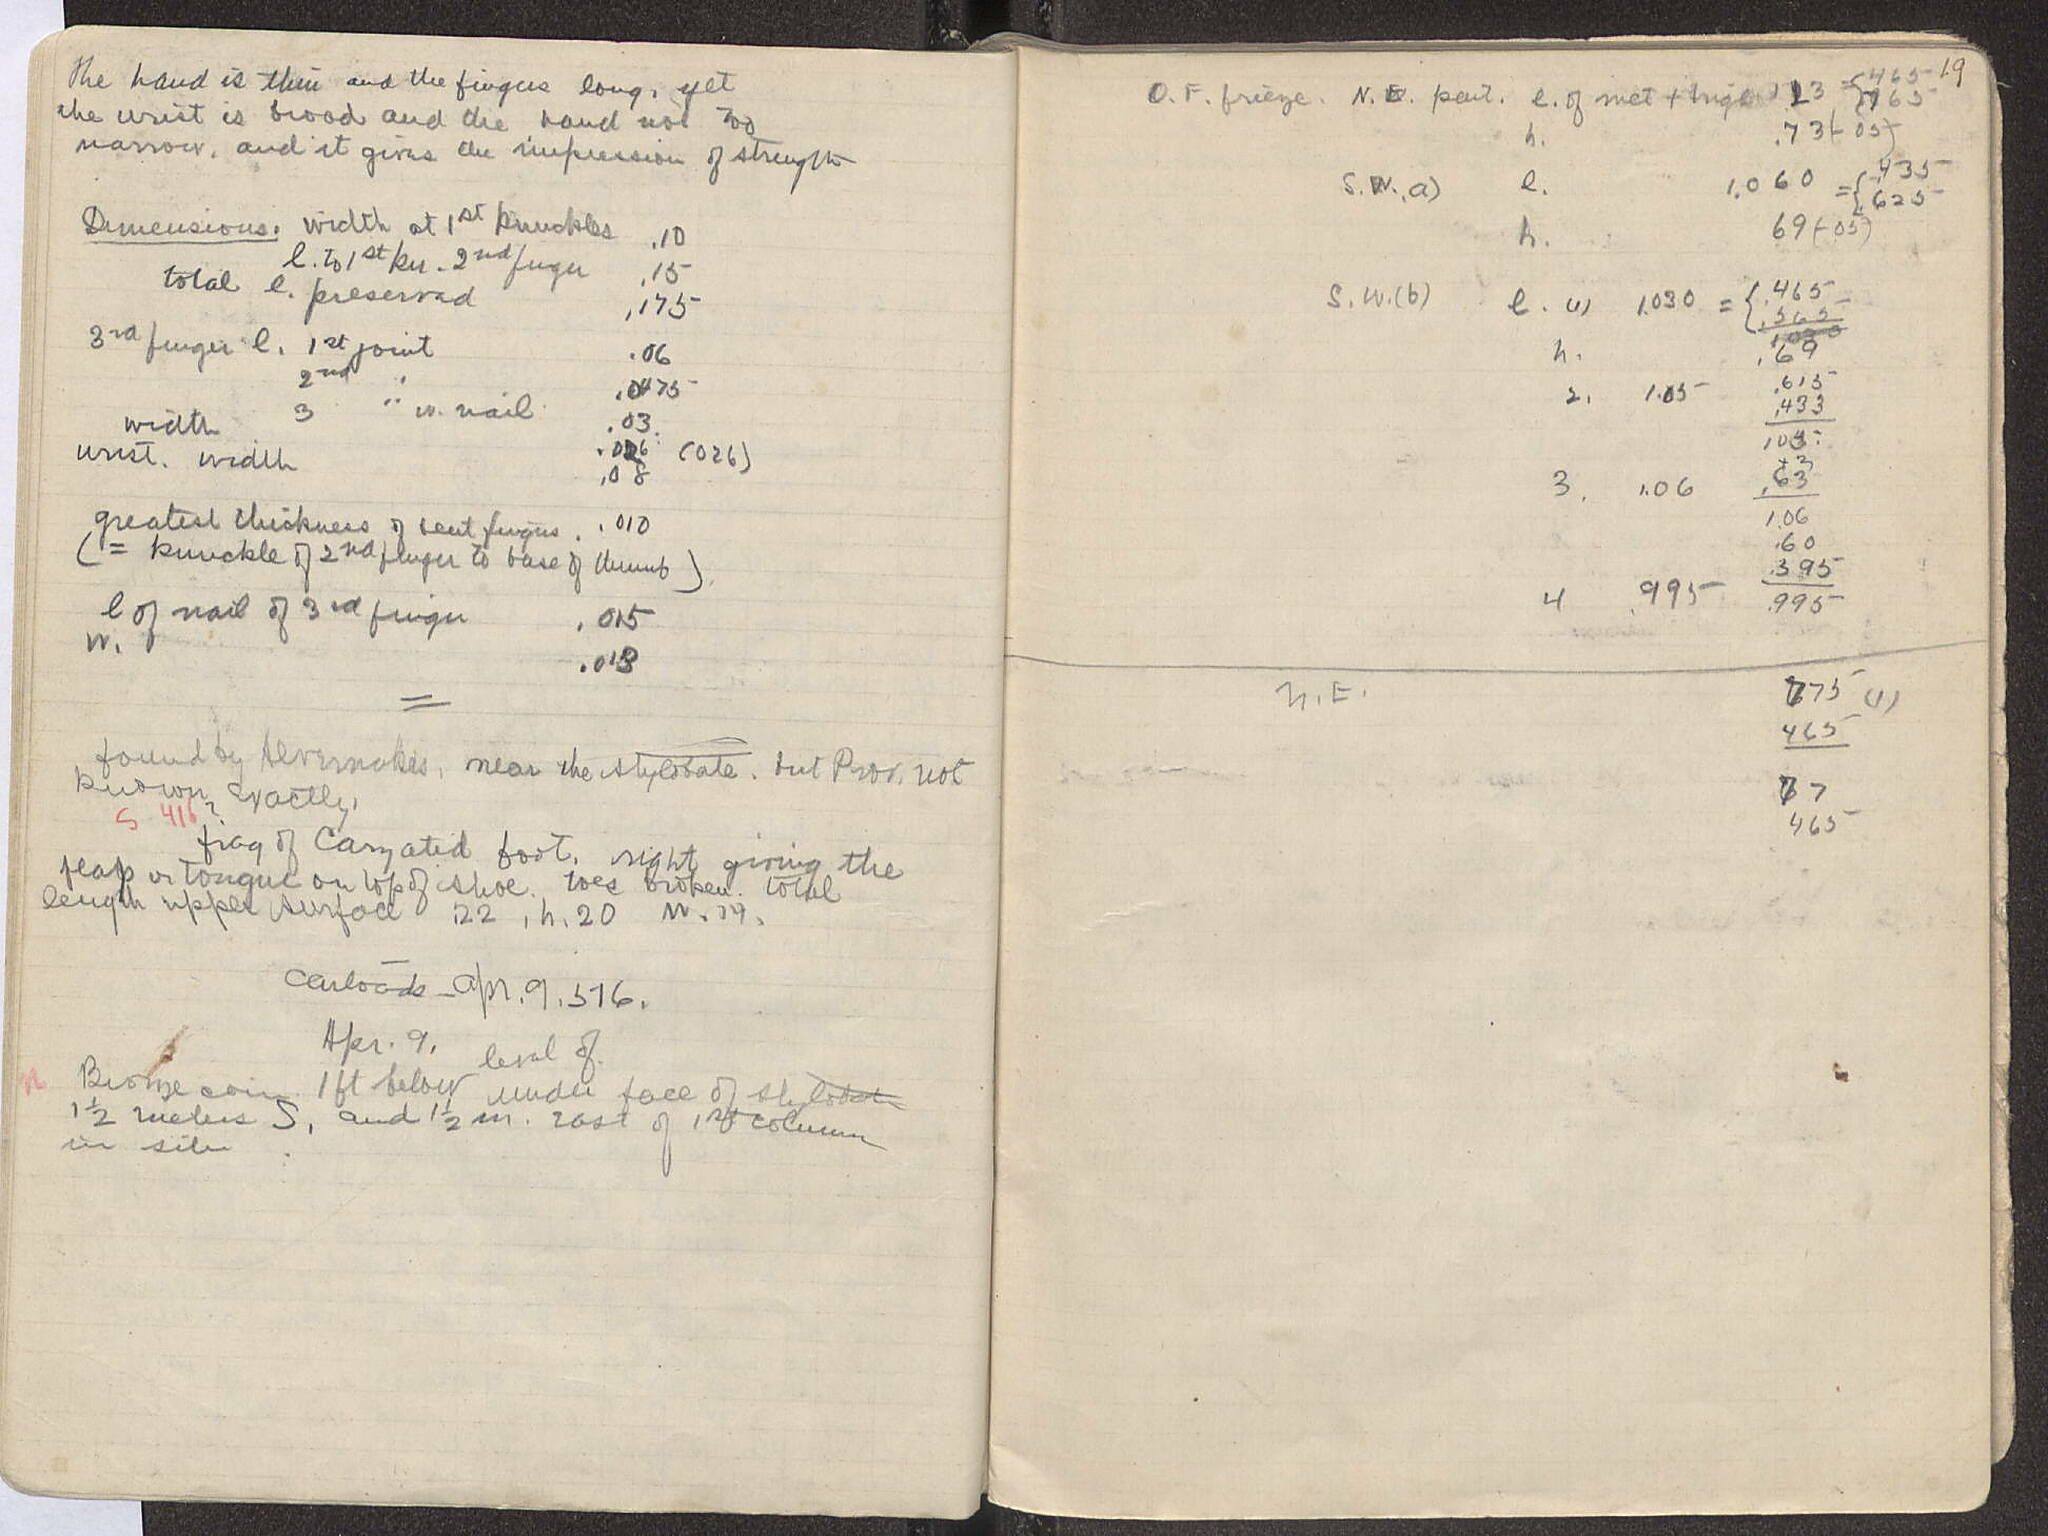 The hand is thin and the fingers long, yet
the wrist is broad and the hand not too
narrow, and it gives the impression of strength
Dimensions. width at 1st knuckles .10
l. to 1st kn. 2nd finger .15
total l. preserved .175
3rd finger l. 1st joint .06
2nd " .0475
3 " w. nail .03
width .026 (026)
wrist. width .08
greatest thickness of bent fingers .010
(= knuckle of 2nd finger to base of thumb)
l of nail of 3rd finger .015
w. .013
found by near the stylobate. but Prov. not
known exactly.
S 416
frag of Caryatid foot, right giving the
flap or tongue on top of shoe. toes broken. total
length upper surface .22, h. 20 w. .19.
Carloads - Apr. 9. 576.
Apr. 9.
Bronze coin 1 ft below level of under face of stylobate
1½ meters S, and 1½ m. east of 1st column
in situ
19
O. F. frieze. N.E. part. l. of met + trigl 1.23 = { .465 .765
h. .73(-05)
S.W. a) l. 1.060 = { .435 .625
h. 69(-05)
S.W. (b) l. (1) 1.030 = { .465
.565
1030
h. .69
2. 1.05 .615
.433
104
3. 1.06 .63
1.06
.60
.395
4 .995 .995
N.E. 775 (1)
465
77
465